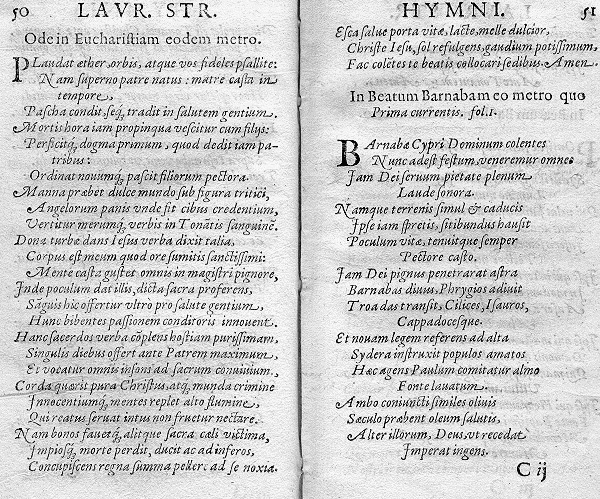 50 LAVR. STR.
Ode in Eucharistiam eodem metro.
PLaudat æther, orbis, atque vos fideles psallite:
Nam superno patre natus: matre casta in
tempore,
Pascha condit, seq́; tradit in salutem gentium.
Mortis hora iam propinqua vescitur cum filijs:
Perficitq́; dogma primum, quod dedit iam pa-
tribus:
Ordinat nouumq́; pascit filiorum pectora.
Manna præbet dulce mundo sub figura tritici,
Angelorum panis vnde sit cibus credentium,
Vertitur merumq́; verbis in Tonãtis sanguinẽ.
Dona turbæ dans Iesus verba dixit talia,
Corpus est meum quod ore sumitis sanctissimi:
Mente casta gustet omnis in magistri pignore,
Inde poculum dat illis, dicta sacra proferens,
Sãguis hic offertur vltro pro salute gentium,
Hunc bibentes passionem conditoris innouent.
Hanc sacerdos verba cõplens hostiam purissimam,
Singulis diebus offert ante Patrem maximum,
Et vocatur omnis insons ad sacrum conuiuium.
Corda quærit pura Christus atq́; munda crimine
Innocentiumq́; mentes replet alto flumine,
Qui reatus seruat intus non fruetur nectare.
Nam bonos fauetq́; alitque sacra cæli victima,
Impiosq́; morte perdit, ducit ac ad inferos,
Concupiscens regna summa pellere ad se noxia.
HYMNI. 51
Esca salue porta vitæ, lacte, melle dulcior,
Christe Iesu, sol refulgens, gaudium potissimum,
Fac colẽtes te beatis collocari sedibus. Amen.
In Beatum Barnabam eo metro quo
Prima currentis. fol. 1.
BArnabæ Cypri Dominum colentes
Nunc adest festum, veneremur omnes
Iam Dei seruum pietate plenum
Laude sonora.
Namque terrenis simul & caducis
Ipse iam spretis, sitibundus hausit
Poculum vitæ, tenuitque semper
Pectore casto.
Iam Dei pignus penetrarat astra
Barnabas diuus, Phrygios adiuit
Troadas transit, Cilices, Isauros,
Cappadocesque.
Et nouam legem referens ad alta
Sydera instruxit populos amatos
Hæc agens Paulum comitatur almo
Fonte lauatum.
Ambo coniuncti similes oliuis
Sæculo præbent oleum salutis,
Alter illorum, Deus vt recedat
Imperat ingens.
C ij